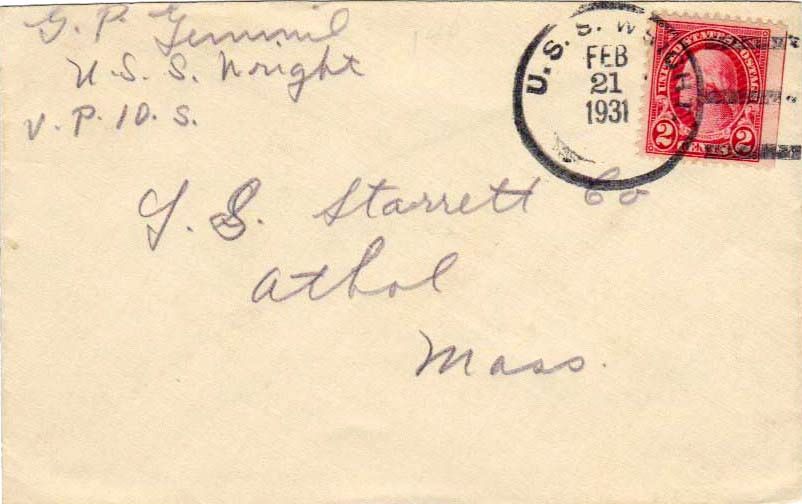 G. P. Gemmil
U. S. S. Wright
V. P. 10. S.
U. S. S. WRIGHT
FEB
21
1931
UNITED STATES POSTAGE
2 CENTS 2
L. S. Starrett Co
Athol
Mass.